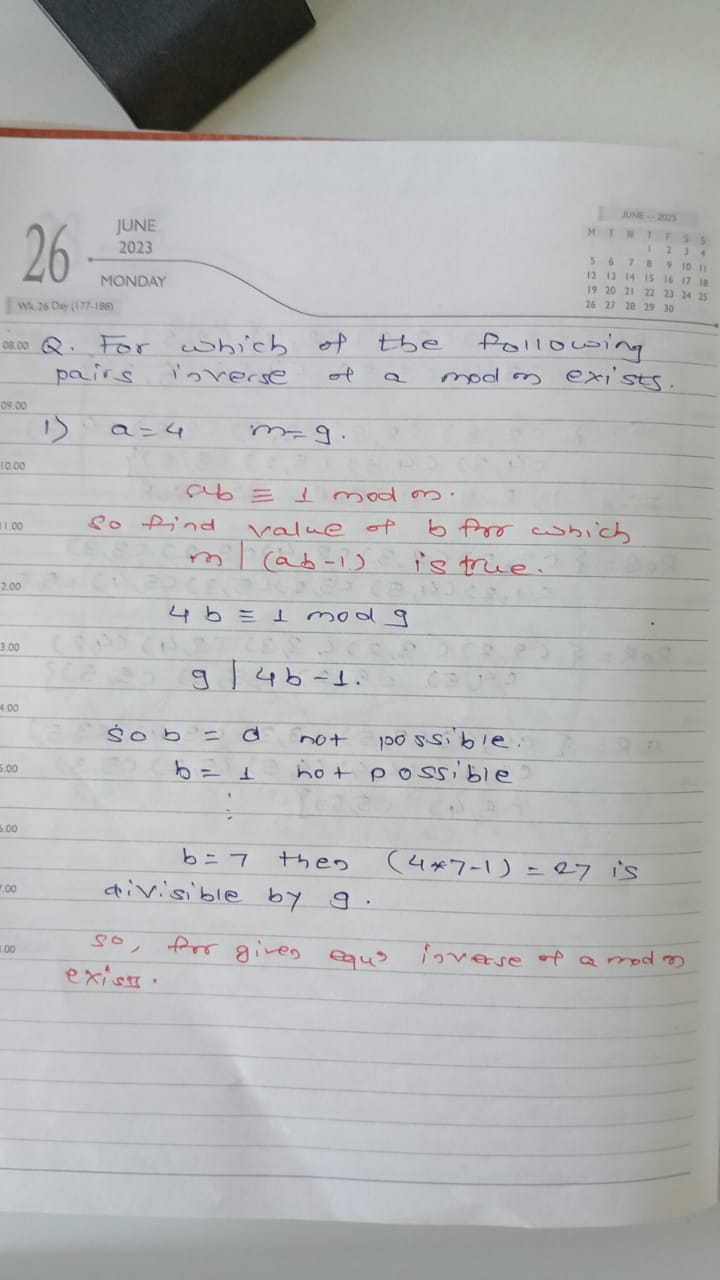 26
JUNE
2023
MONDAY
Wk.26 Day (177-188)
JUNE -- 2023
M T W T F S S
1 2 3 4
5 6 7 8 9 10 11
12 13 14 15 16 17 18
19 20 21 22 23 24 25
26 27 28 29 30
08.00 Q. For which of the following
pairs inverse of a mod m exists.
09.00
1) a=4 m=9.
10.00
ab ≡ 1 mod m.
11.00 so find value of b for which
m | (ab-1) is true.
2.00
4b ≡ 1 mod 9
3.00
9 | 4b-1.
4.00
so b = 0 not possible.
5.00 b = 1 not possible
⋮
6.00
b=7 then (4*7-1) = 27 is
7.00 divisible by 9.
.00 so, for given equn inverse of a mod m
exists.